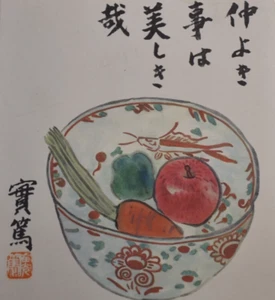 仲よき
事は
美しき
哉
實篤